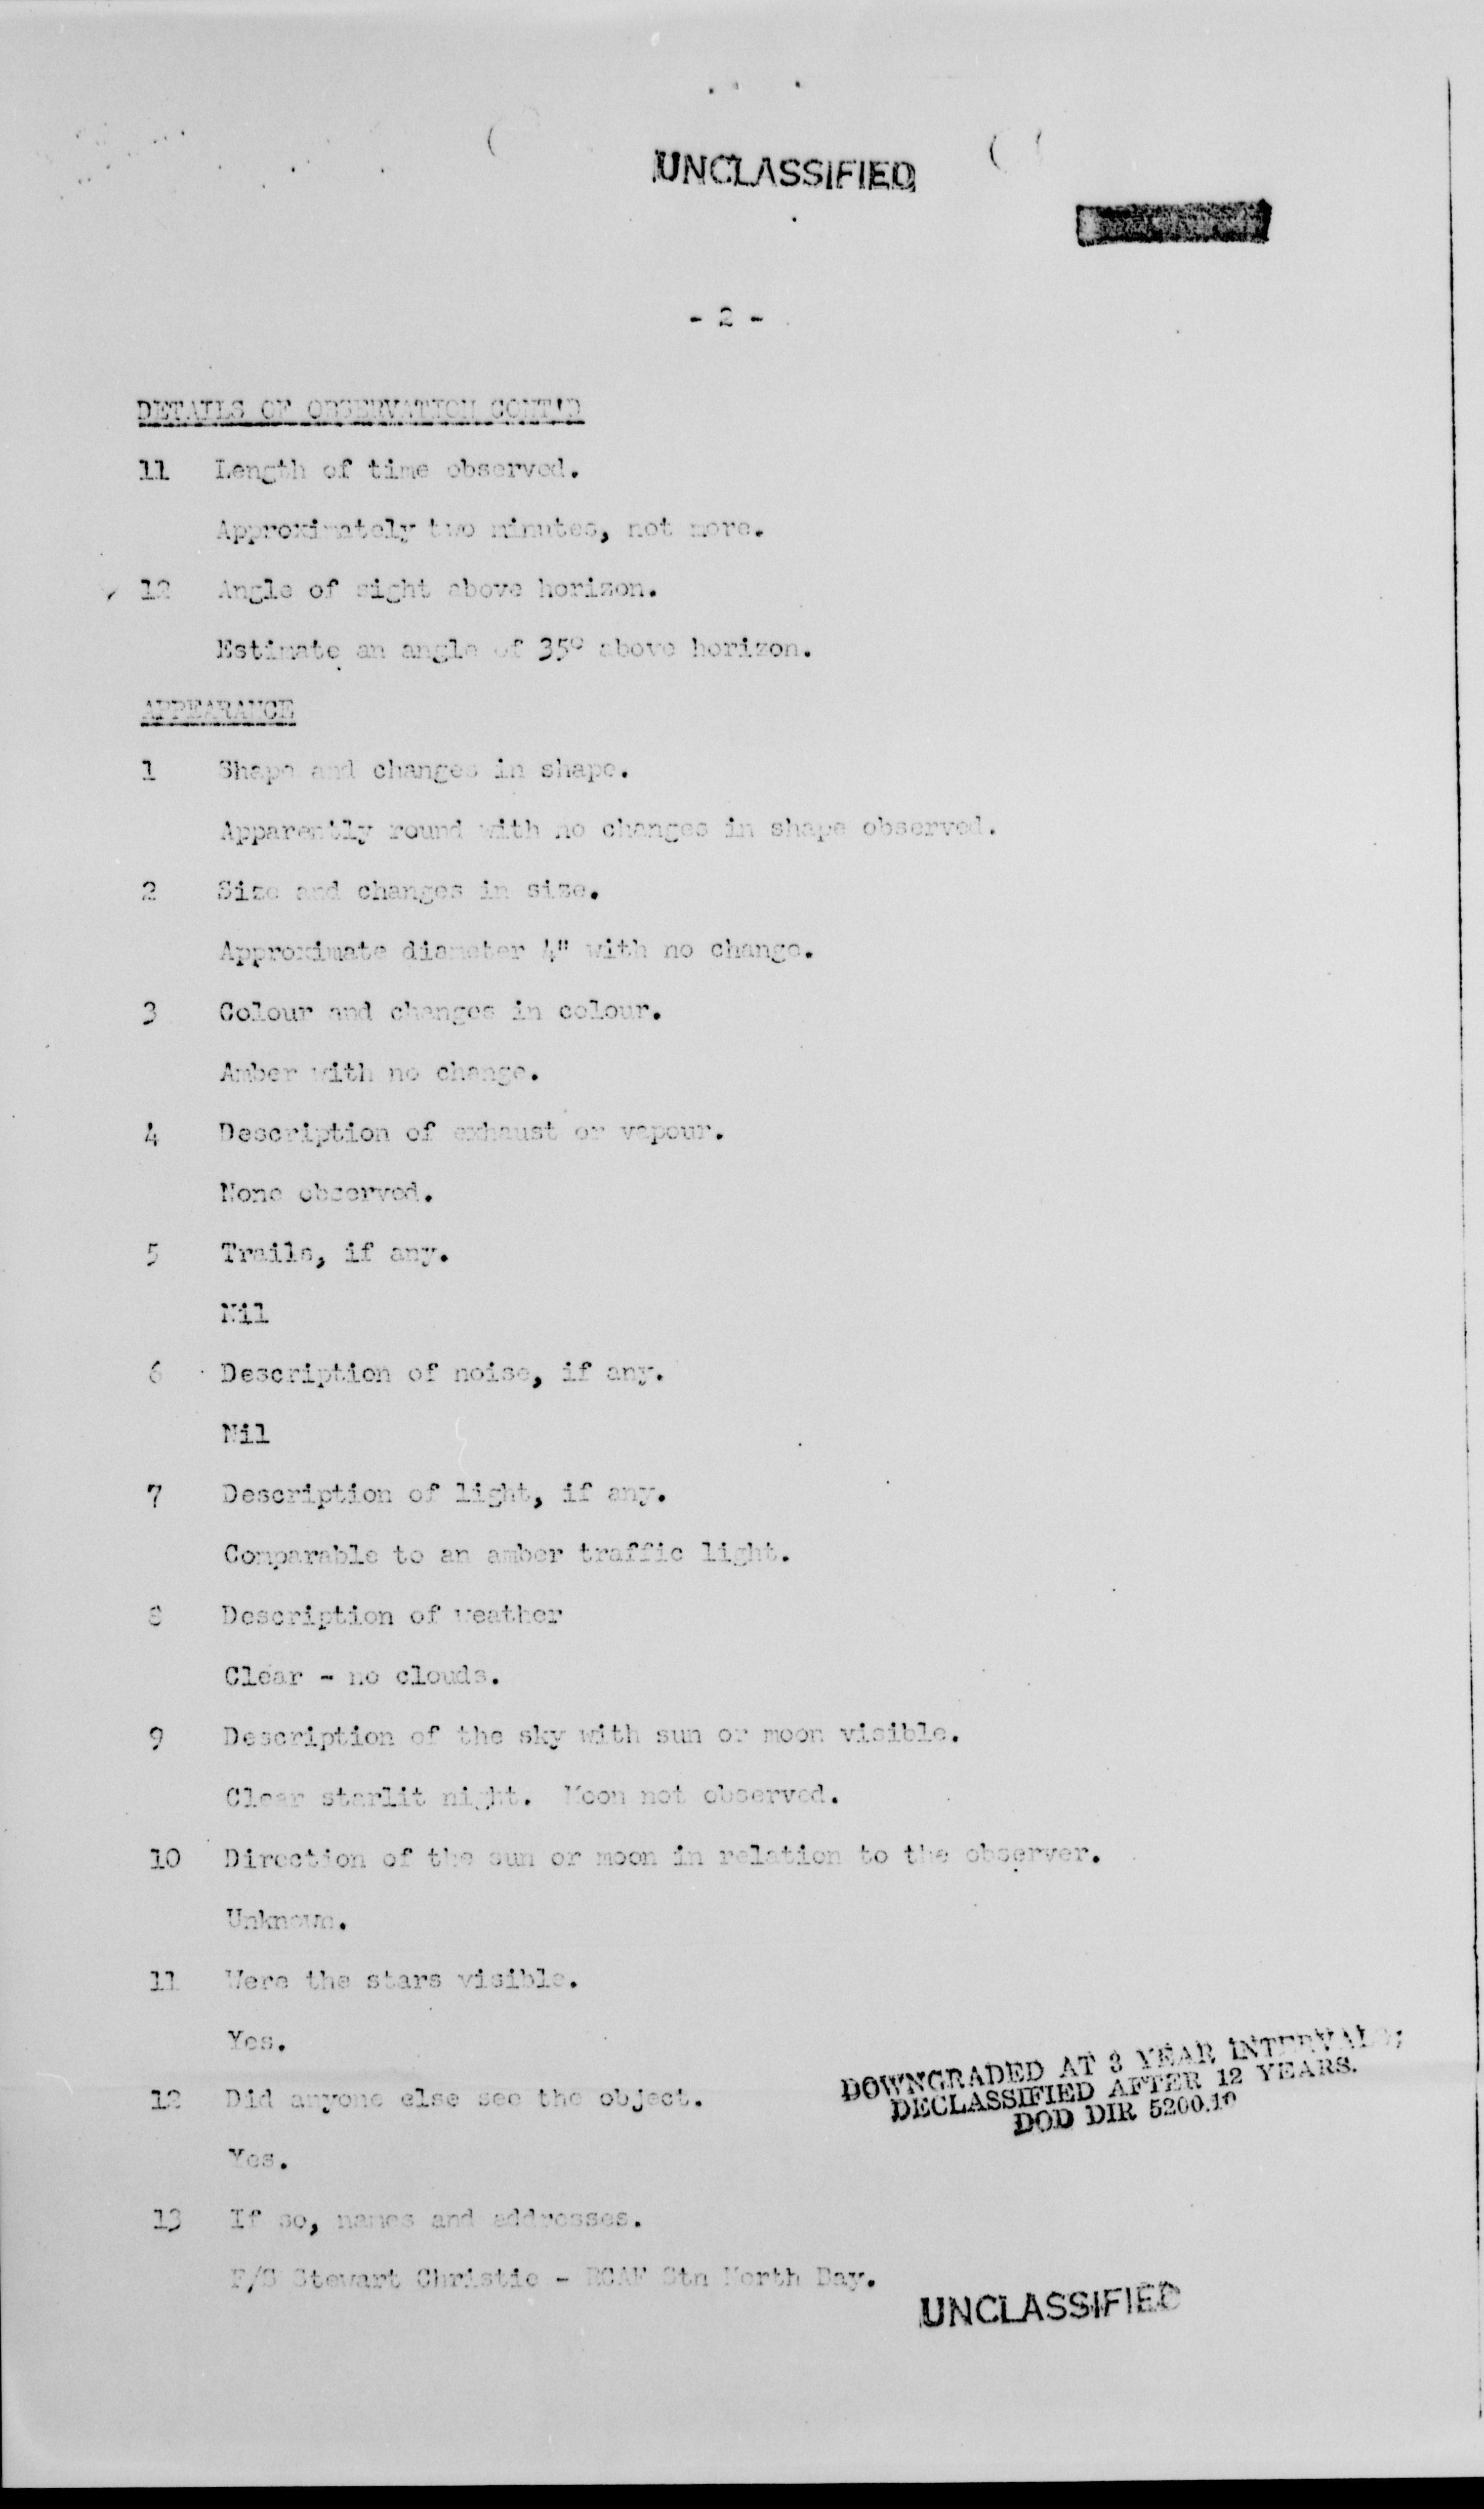 UNCLASSIFIED
- 2 -
DETAILS OF OBSERVATION CONT'D
11 Length of time observed.
Approximately two minutes, not more.
12 Angle of sight above horizon.
Estimate an angle of 35° above horizon.
APPEARANCE
1 Shape and changes in shape.
Apparently round with no changes in shape observed.
2 Size and changes in size.
Approximate diameter 4" with no change.
3 Colour and changes in colour.
Amber with no change.
4 Description of exhaust or vapour.
None observed.
5 Trails, if any.
Nil
6 Description of noise, if any.
Nil
7 Description of light, if any.
Comparable to an amber traffic light.
8 Description of weather
Clear - no clouds.
9 Description of the sky with sun or moon visible.
Clear starlit night. Moon not observed.
10 Direction of the sun or moon in relation to the observer.
Unknown.
11 Were the stars visible.
Yes.
12 Did anyone else see the object.
Yes.
DOWNGRADED AT 3 YEAR INTERVALS;
DECLASSIFIED AFTER 12 YEARS.
DOD DIR 5200.10
13 If so, names and addresses.
F/S Stewart Christie - RCAF Stn North Bay.
UNCLASSIFIED